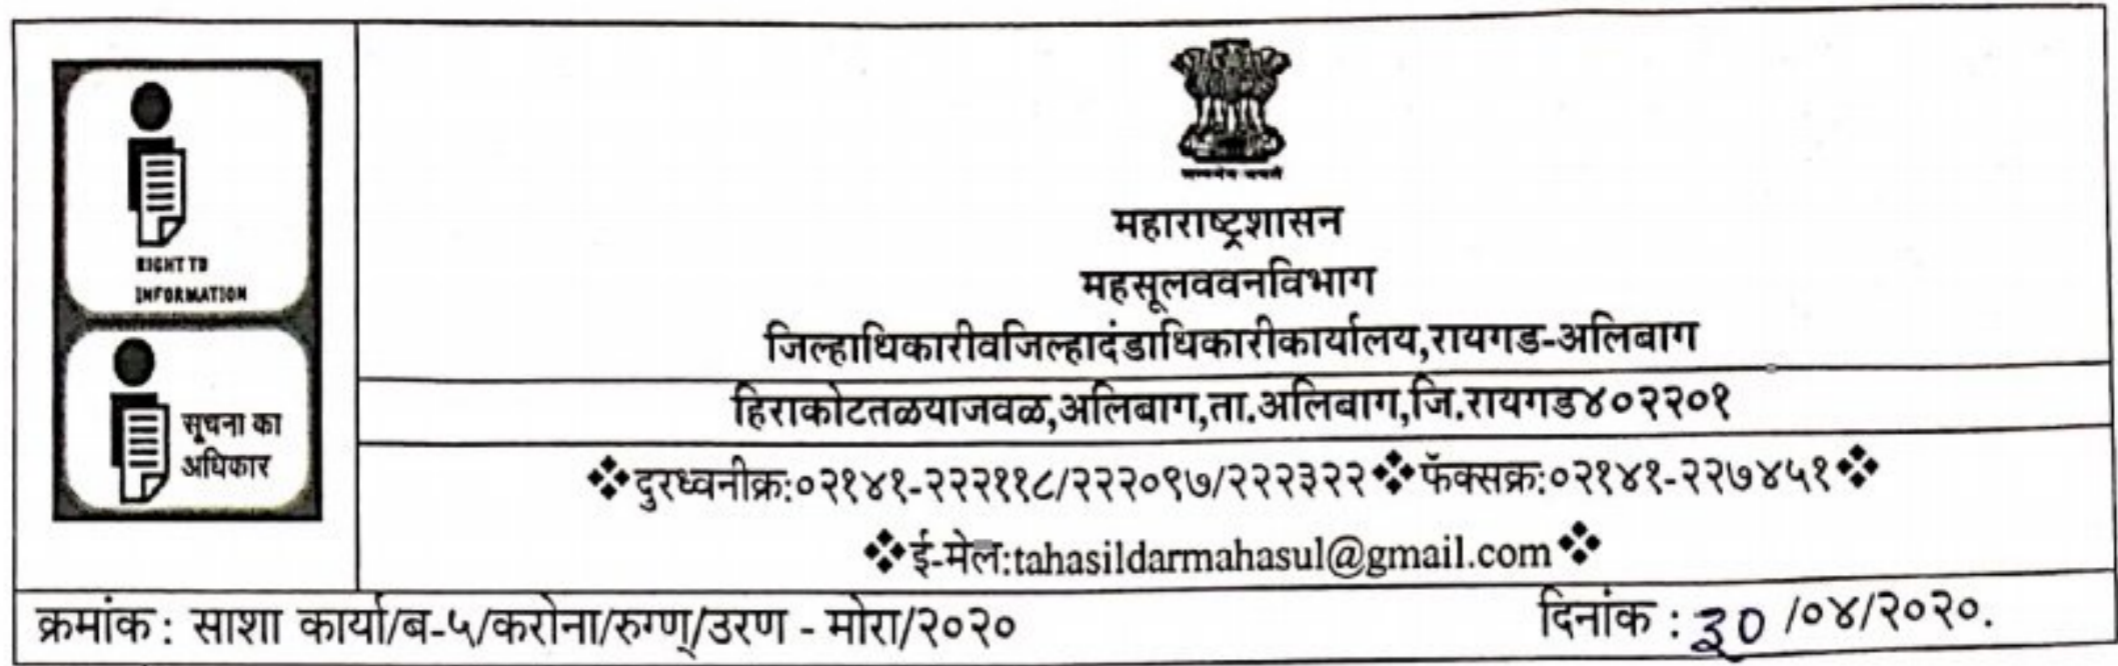 RIGHT TO
INFORMATION
सूचना का
अधिकार
सत्यमेव जयते
महाराष्ट्रशासन
महसूलववनविभाग
जिल्हाधिकारीवजिल्हादंडाधिकारीकार्यालय,रायगड-अलिबाग
हिराकोटतळयाजवळ,अलिबाग,ता.अलिबाग,जि.रायगड४०२२०१
❖दुरध्वनीक्र:०२१४१-२२२११८/२२२०९७/२२२३२२❖फॅक्सक्र:०२१४१-२२७४५१❖
❖ई-मेल:tahasildarmahasul@gmail.com❖
क्रमांक : साशा कार्या/ब-५/करोना/रुग्ण्/उरण - मोरा/२०२० दिनांक : ३0 /०४/२०२०.